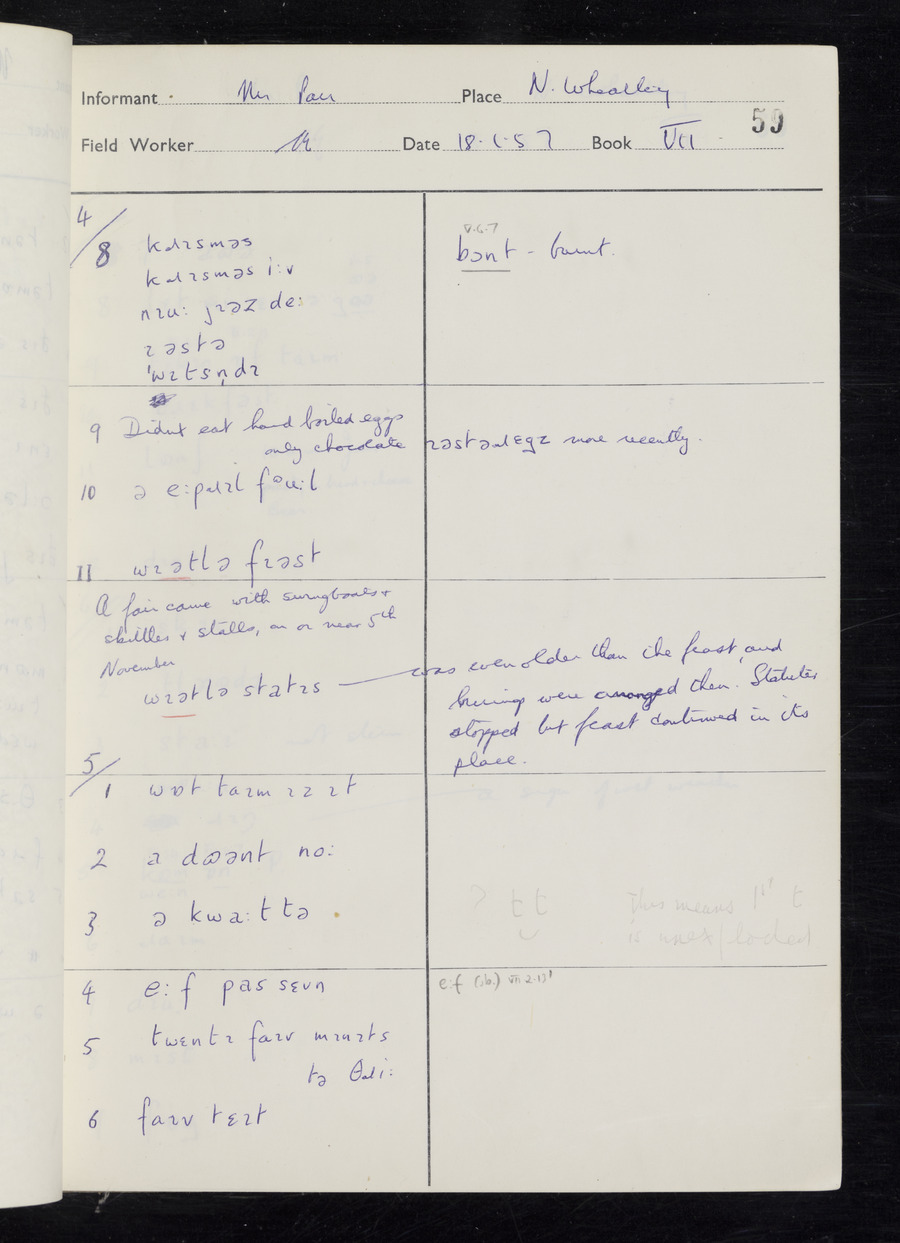 Informant Mr Parr Place N. Wheatley
Field Worker Date 18.1.57 Book VII 59
4/8 kɹɪsməs
kɹɪsməs i:v
nɪu: jɪəz de:
ɪəstə
ˈwɪtsn̩dɪ
v.6.7
bənt - burnt.
9 Didn't eat hard boiled eggs
only chocolate ɪəstəɹɛgz more recently.
10 ə e:pɹɪl fəu:l
11 wɪətlə fɪəst
A fair came with swingboats +
skittles + stalls, on or near 5th
November
wɪətlə statɪs
was even older than the feast, and
hirings were arranged then. Statutes
stopped but feast continued in its
place.
5/1 wɒt taɪm ɪz ɪt
2 a dʊənt no:
3 ə kwa:ttə
? tt This means 1st t
is unexploded
4 e:f pas sɛvn
e:f (sb.) VII 2.13'
5 twentɪ faɪv mɪnɪts
tə θɹi:
6 faɪv tɛɪt